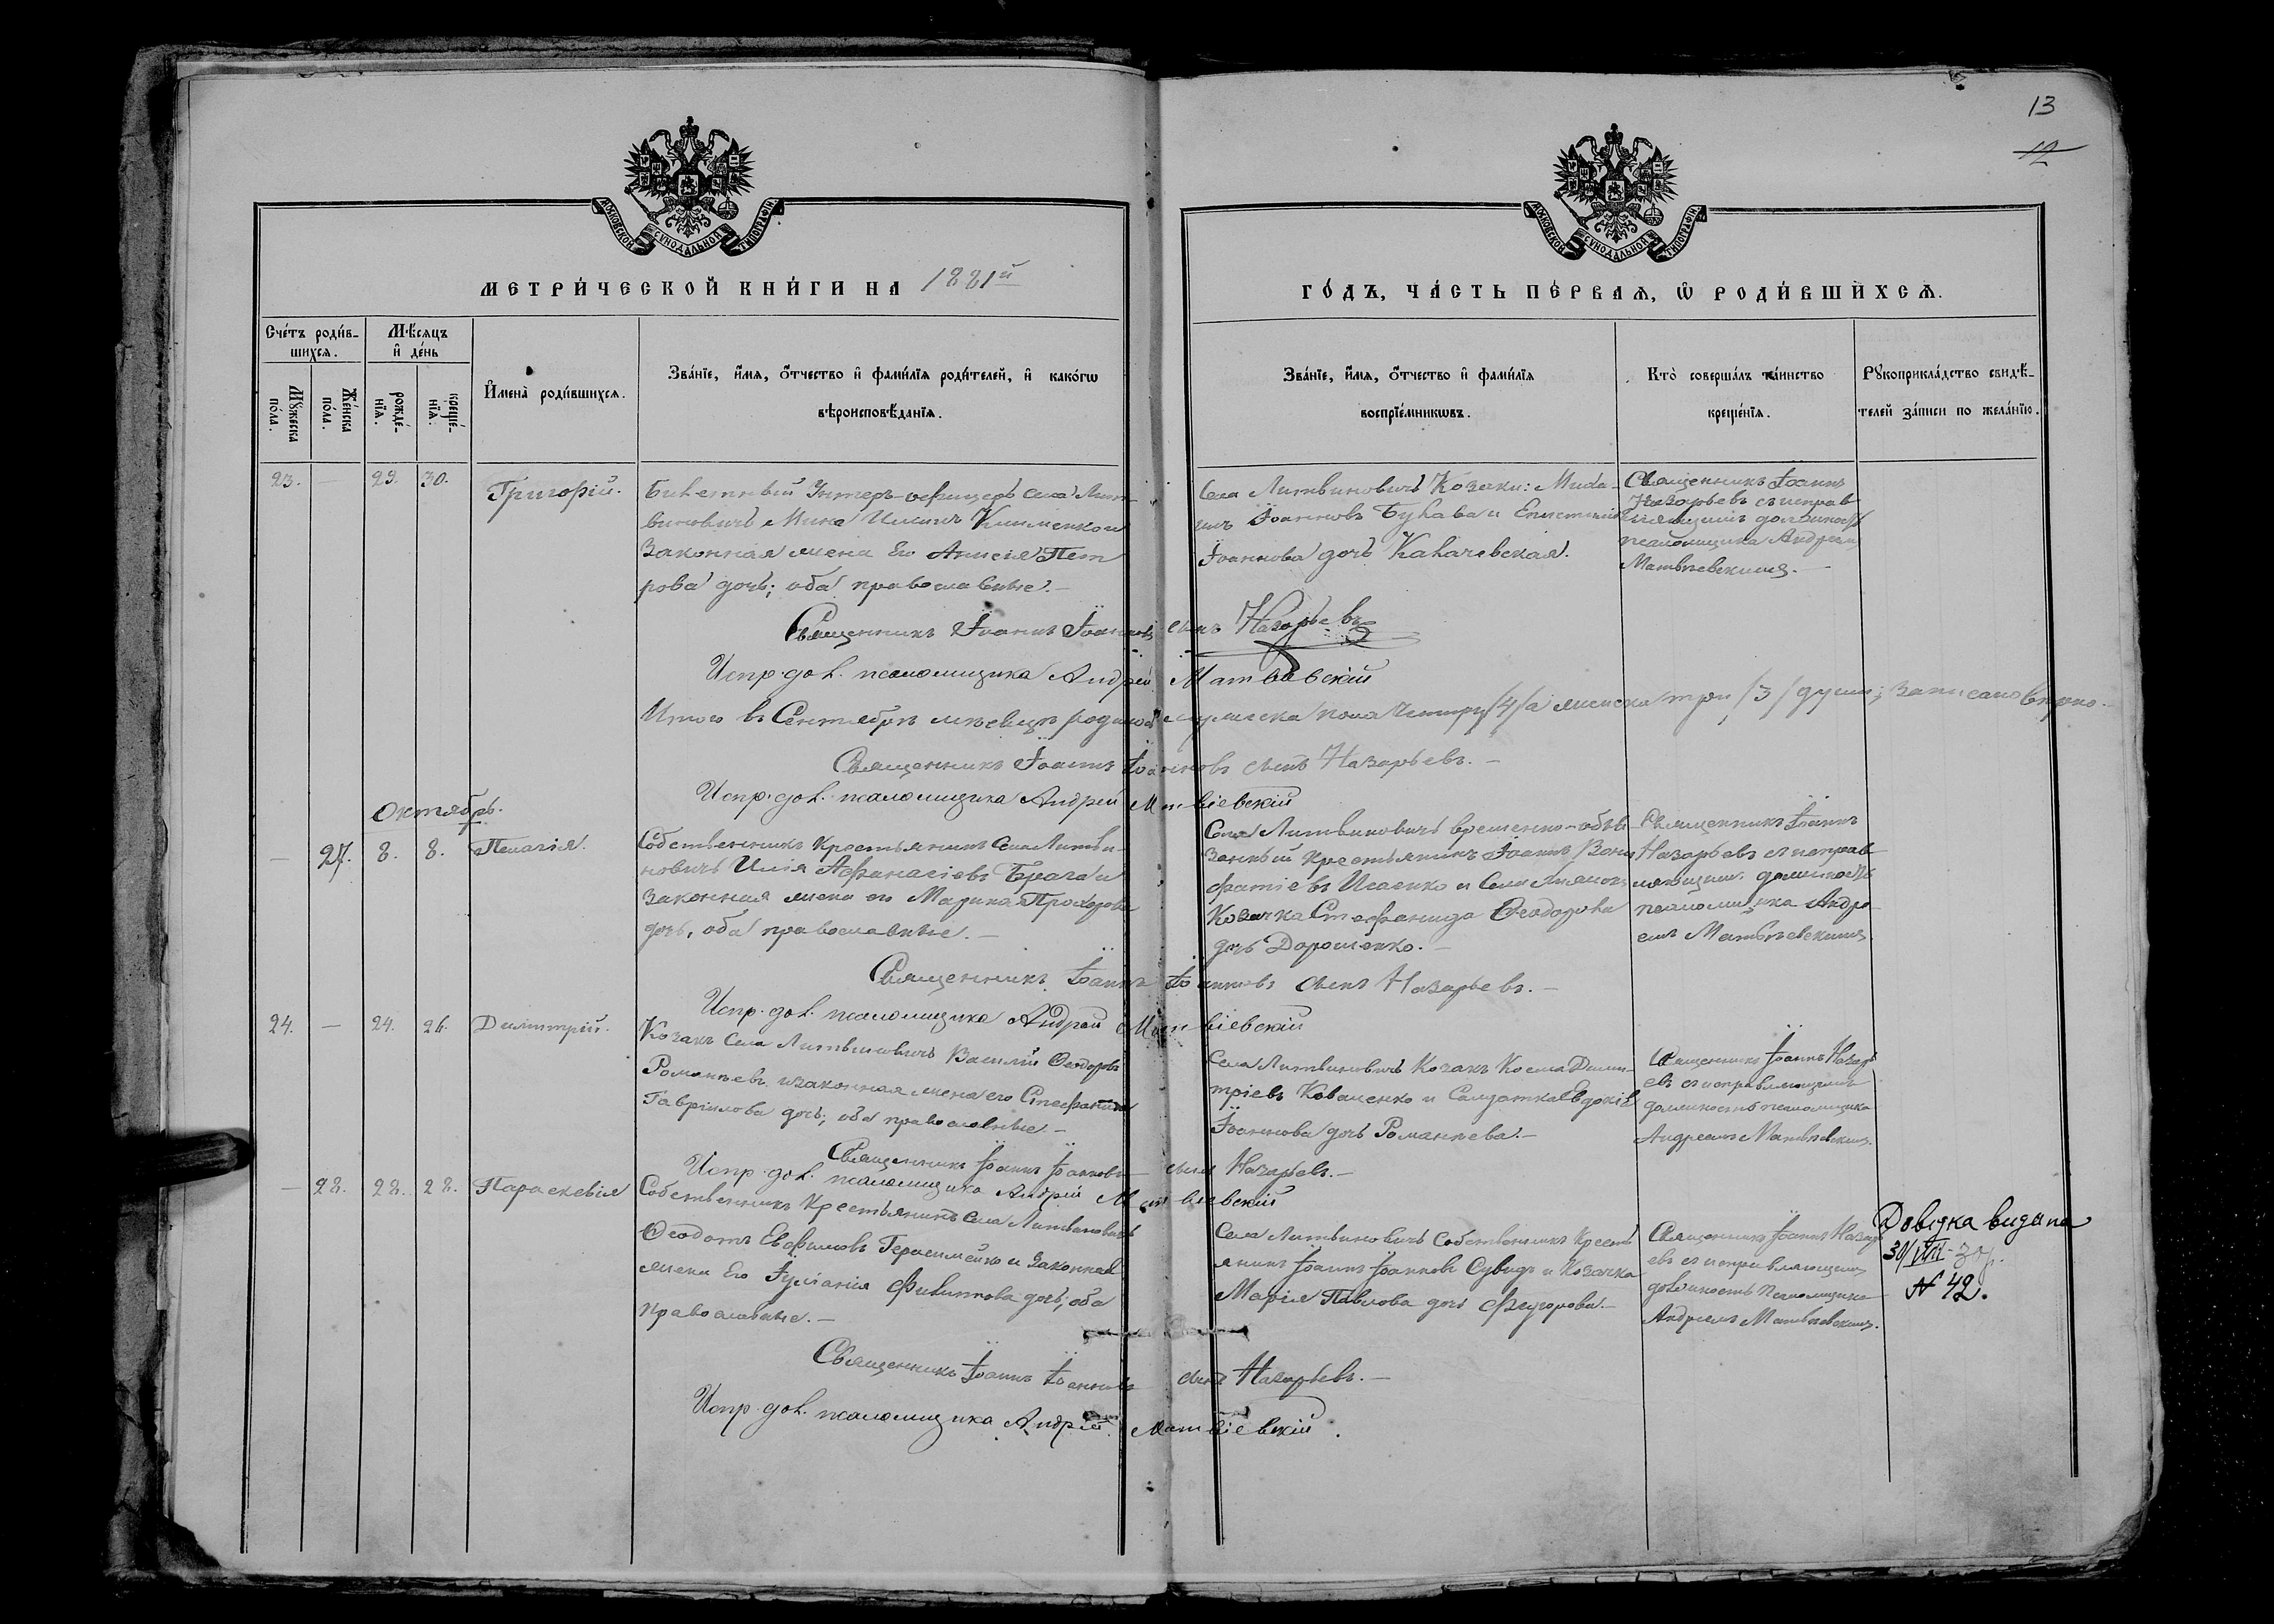 13
12
МОСКОВСКОЙ СѴНОДАЛЬНОЙ ТИПОГРАФІИ
МОСКОВСКОЙ СѴНОДАЛЬНОЙ ТИПОГРАФІИ
МЕТРИ́ЧЕСКОЙ КНИ́ГИ НА 1881й
ГО́ДЪ, ЧА́СТЬ ПЕ́РВАѦ, Ѡ҆ РОДИ́ВШИХСѦ.
Сче́тъ роди́в-
шихсѧ.
Мꙋ́жеска по́ла.
Же́нска по́ла.
Мѣ́сяцъ
и҆ де́нь
рожде́-
нїѧ.
креще́-
нїѧ.
И҆мена̀ роди́вшихсѧ.
Зва́нїе, и҆́мѧ, ѻ҆́тчество и҆ фами́лїѧ роди́телей, и҆ како́гѡ
вѣроисповѣ́данїѧ.
Зва́нїе, и҆́мѧ, ѻ҆́тчество и҆ фами́лїѧ
воспрїе́мникѡвъ.
Кто̀ соверша́лъ та́инство
креще́нїѧ.
Рꙋкоприкла́дство свидѣ́-
телей за́писи по жела́нїю.
23. — 29. 30. Григорій.
Билетный Унтеръ-офицеръ села Лит-
виновичъ Мина Илiинъ Клименко и
законная жена его Анисія Пет
рова дочь; оба православные.—
Села Литвиновичъ Козаки: Миха-
илъ Іоанновъ Булава и Епистимія
Іоаннова дочь Калачевская.
Священникъ Іоаннъ
Назарьевъ съ исправ
ляющимъ должность
псаломщика Андреемъ
Матвѣевскимъ.—
Священникъ Іоаннъ Іоанновъ сынъ Назарьевъ
Испр. дол. псаломщика Андрей Матвіевскій
Итого въ Сентябрѣ мѣсяцѣ родилось мужеска пола четыре /4/ а женска три /3/ души; записано вѣрно.—
Священникъ Іоаннъ Іоанновъ сынъ Назарьевъ.—
Испр. дол. псаломщика Андрей Матвіевскій
Октябрь.
— 27. 8. 8. Пелагія.
Собственникъ крестьянинъ села Литви-
новичъ Илія Афанасіевъ Брага и
законная жена его Марина Прохорова
дочь, оба православные.—
Села Литвиновичъ временно-обя-
занный крестьянинъ Іоаннъ Вони
фатіевъ Исаенко и Села
Козачка Стефанида Ѳеодорова
дочь Дорошенко.—
Священникъ Іоаннъ
Назарьевъ съ исправ
ляющимъ должность
псаломщика Андре
емъ Матвѣевскимъ.
Священникъ Іоаннъ Іоанновъ сынъ Назарьевъ.—
Испр. дол. псаломщика Андрей Матвіевскій
24. — 24. 26. Димитрій.
Козакъ Села Литвиновичъ Василій Ѳеодоровъ
Романьевъ и законная жена его Стефанида
Гавріилова дочь; оба православные.—
Села Литвиновичъ Козакъ Косма Дими-
тріевъ Коваленко и Солдатка Евдокія
Іоаннова дочь Романьева.—
Священникъ Іоаннъ Назарь
евъ съ исправляющимъ
должность псаломщика
Андреемъ Матвѣевскимъ.
Священникъ Іоаннъ Іоанновъ сынъ Назарьевъ.—
Испр. дол. псаломщика Андрей Матвіевскій
— 28. 28. 28. Параскевія
Собственникъ крестьянинъ села Литвиновичъ
Ѳеодотъ Евфимовъ Герасименко и законная
жена его Іуліанія Филиппова дочь; оба
православные.—
Села Литвиновичъ Собственникъ крестъ
янинъ Іоаннъ Іоанновъ Сувидъ и Козачка
Марія Павлова дочь
Священникъ Іоаннъ Назарь
евъ съ исправляющимъ
должность псаломщика
Андреемъ Матвѣевскимъ.
Довідка видана
30/VIII-37р.
№ 42.
Священникъ Іоаннъ Іоанновъ сынъ Назарьевъ.—
Испр. дол. псаломщика Андрей Матвіевскій.